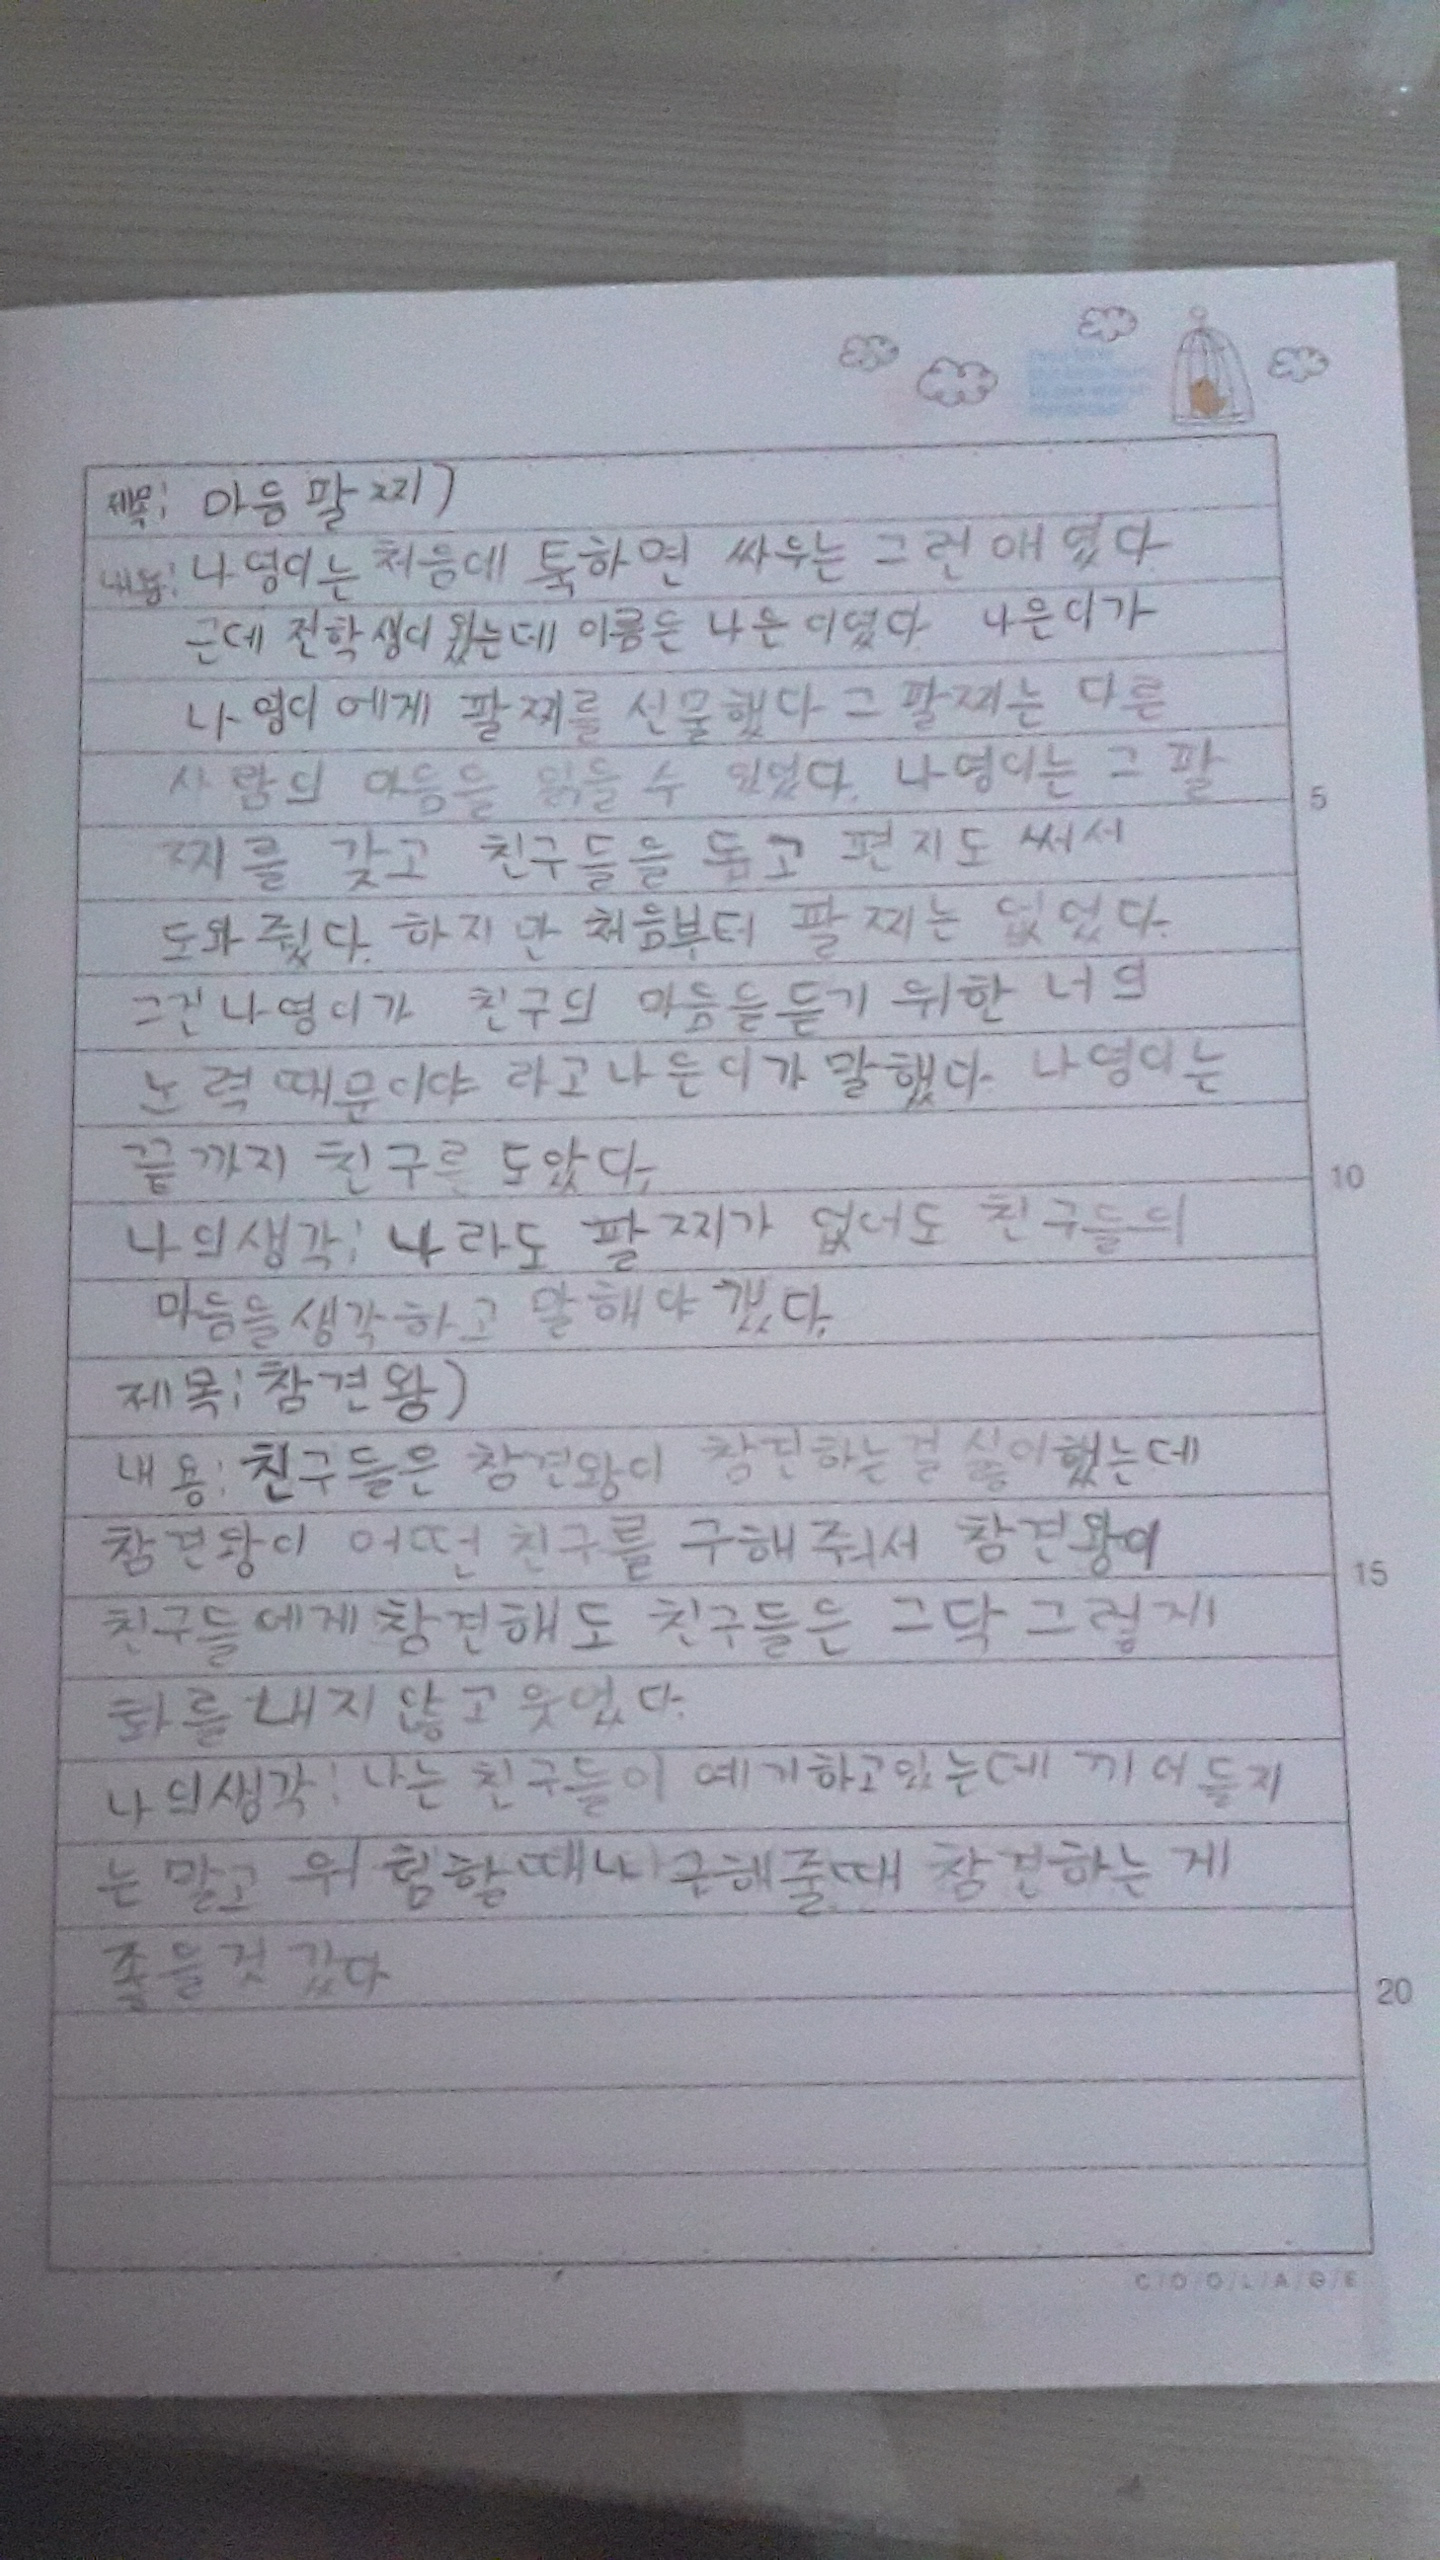 제목: 마음 팔찌)
내용: 나영이는 처음데 툭하면 싸우는 그런 애였다
근데 전학생이 왔는데 이름은 나은이였다 나은이가
나영이에게 팔찌를 선물했다 그 팔찌는 다른
사람의 마음을 읽을 수 있었다. 나영이는 그 팔
찌를 갖고 친구들을 돕고 편지도 써서
도와줬다. 하지만 처음부터 팔찌는 없었다.
그건 나영이가 친구의 마음을 듣기 위한 너의
노력 때문이야 라고 나은이가 말했다 나영이는
끝까지 친구를 도왔다.
나의생각: 나라도 팔찌가 없어도 친구들의
마음을 생각하고 말해야 겠다.
제목: 참견왕)
내용: 친구들은 참견왕이 참견하는걸 싫어했는데
참견왕이 어떤 친구를 구해줘서 참견왕이
친구들에게 참견해도 친구들은 그닥 그렇게
화를 내지 않고 웃었다.
나의생각: 나는 친구들이 예기하고있는데 끼어들지
는 말고 위험할때나 구해줄때 참견하는 게
좋을것 같다
5
10
15
20
COOLAGE